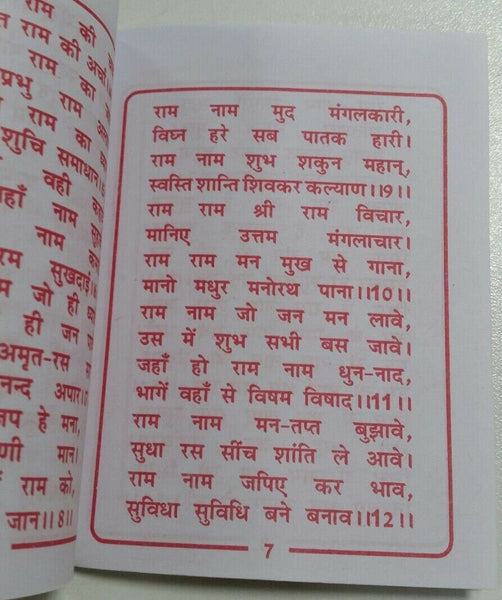 राम की
राम की
प्रभु राम
राम का
शुचि समाधान
वही
नाम
सुखदाई
जो ही
ही जन
अमृत-रस
अपार
हे मना,
मान।
राम को,
जान।।8।।
राम नाम मुद मंगलकारी,
विघ्न हरे सब पातक हारी।
राम नाम शुभ शकुन महान्,
स्वस्ति शान्ति शिवकर कल्याण।।9।।
राम राम श्री राम विचार,
मानिए उत्तम मंगलाचार।
राम राम मन मुख से गाना,
मानो मधुर मनोरथ पाना।।10।।
राम नाम जो जन मन लावे,
उस में शुभ सभी बस जावे।
जहाँ हो राम नाम धुन-नाद,
भागें वहाँ से विषम विषाद।।11।।
राम नाम मन-तप्त बुझावे,
सुधा रस सींच शांति ले आवे।
राम नाम जपिए कर भाव,
सुविधा सुविधि बने बनाव।।12।।
7